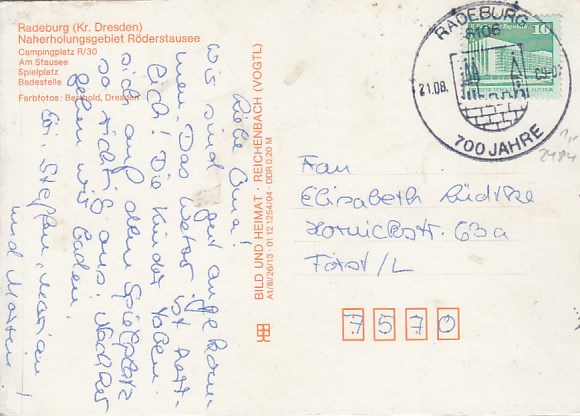 Radeburg (Kr. Dresden)
Naherholungsgebiet Röderstausee
Campingplatz R/30
Am Stausee
Spielplatz
Badestelle
Farbfotos: Berthold, Dresden
Liebe Oma!
Wir sind gut angekom-
men. Das Wetter ist herr-
lich! Die Kinder toben
sich auf dem Spielplatz
so richtig aus. Nachher
gehen wir baden.
Steffen, Marian
und Marten!
BILD UND HEIMAT · REICHENBACH (VOGTL)
A1/III/26/13 · 01 12 1254/04 · DDR 0,20 M
RADEBURG
8106
21.08.
700 JAHRE
10
DDR
Frau
Elisabeth Lüdtke
Hornickstr. 63a
Forst/L
7570
2484